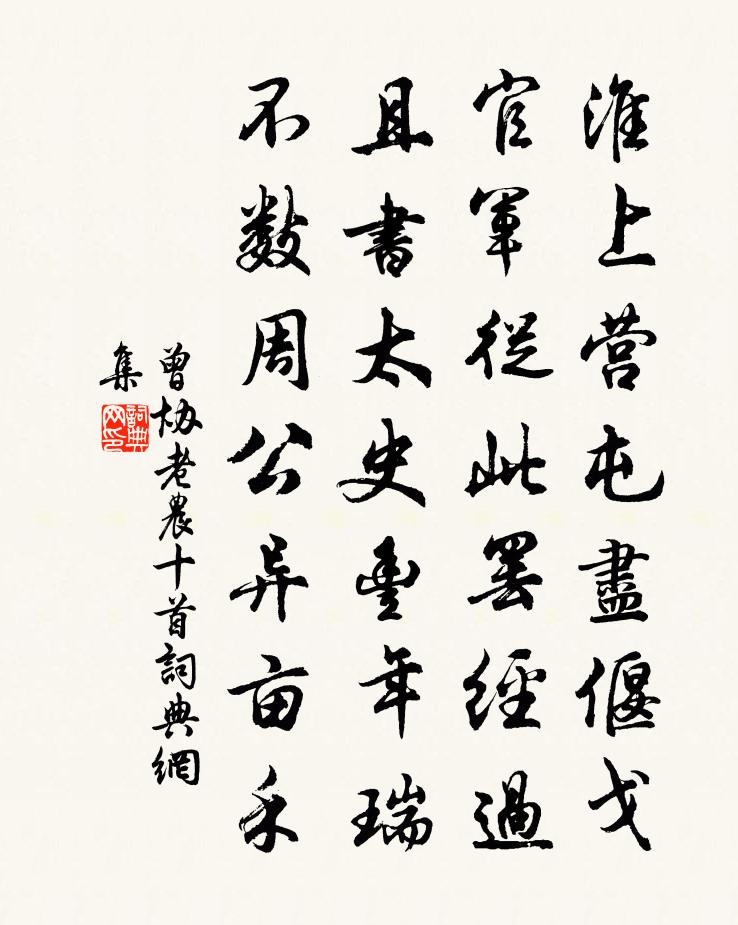 淮上营屯盡偃戈
官軍從此罢經過
且書太史豊年瑞
不数周公异亩禾
曾协老農十首詞典網
集
詞典
网印